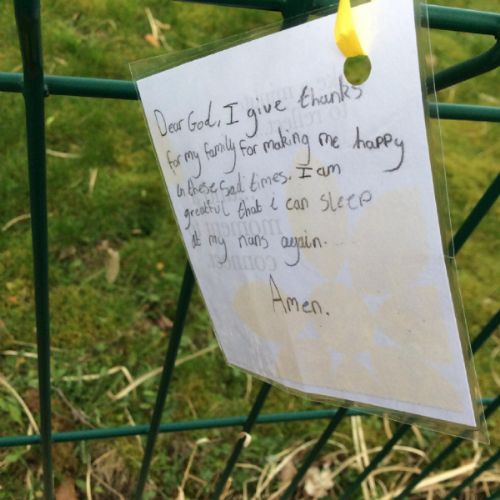 Dear God, I give thanks
for my family for making me happy
in these sad times. I am
greatful that i can sleep
at my nans again.
Amen.